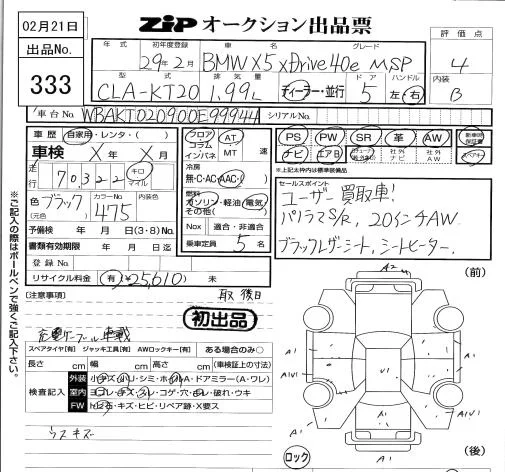 02月21日
出品No.
333
ZIP オークション出品票
年式 初年度登録 車名 グレード
29年2月 BMW X5 xDrive40e MSP
評価点
4
型式 排気量 ドア ハンドル
CLA-KT20 1.99L ディーラー・並行 5 左・右
内装
B
車台No. WBAKT020900E99944 シリアルNo.
車歴 自家用・レンタ・( )
車検 X年 X月
走行 70,322 キロ マイル
色 ブラック (元色) カラーNo. 475 内装色
予備検 年 月 日(3・8)No.
書類有効期限 年 月 日迄
登録No.
リサイクル料金 有 ¥25,610 未
フロア コラム インパネ AT MT 速
冷房
無・C・AC・AAC
燃料
ガソリン・軽油・電気
その他( )
Nox 適合・非適合
乗車定員 5 名
PS PW SR 革 AW
ナビ エアB 社外ナビ 社外AW
※上記太枠内は標準装備品
セールスポイント
ユーザー買取車!
パノラマS/R, 20インチAW
ブラックレザーシート, シートヒーター.
※ご記入の際はボールペンで強くご記入下さい。
[注意事項]
取 後日
初出品
充電ケーブル車載
スペアタイヤ[有] ジャッキ工具[有] AWロックキー[有] ある場合のみ○
長さ cm 幅 cm 高さ cm (車検証上の寸法)
検査記入
外装 小キズ・ハリ・シミ・ホイルA・ドアミラー(A・ワレ)
室内 ヨゴレ・キズ・スレ・コゲ・穴・・破れ・ウキ
FW ト石・キズ・ヒビ・リペア跡・X要ス
ウスキズ
(前)
A2
A1
A1
A1
A1
A1V1
A1V1
(後)
ロック